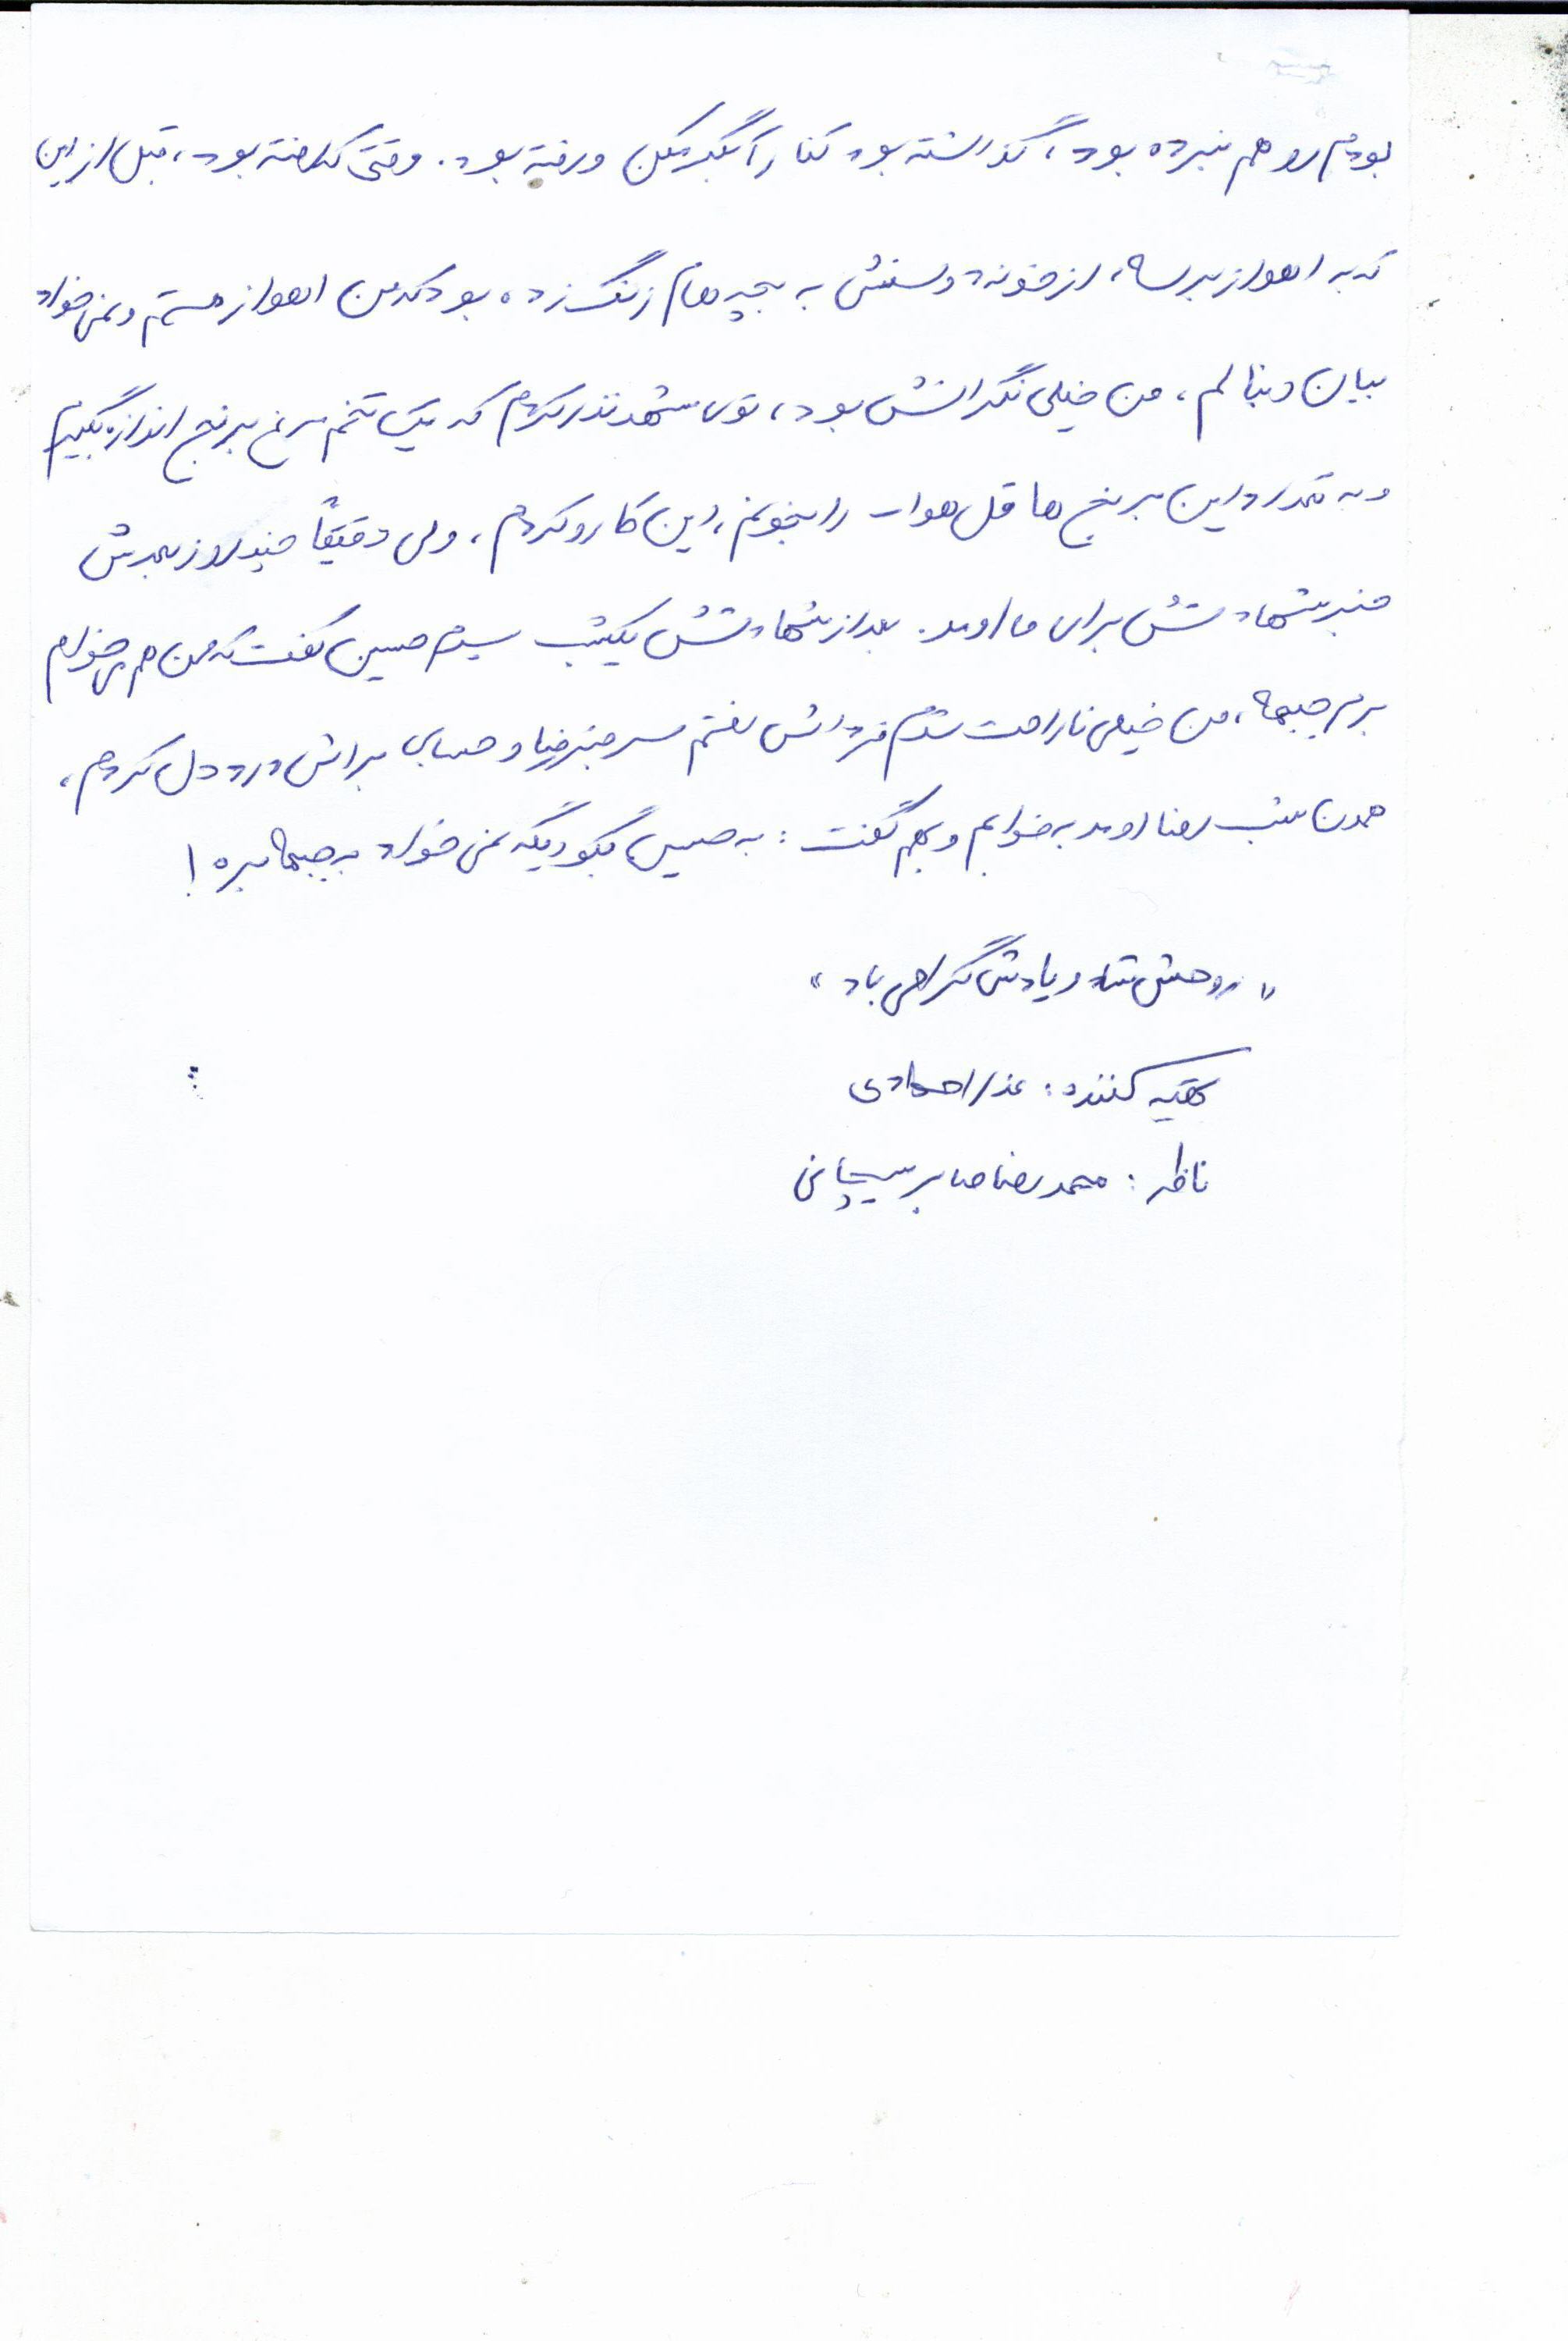 بودم رو هم نبرده بود، گذاشته بود کنار آبگرمکن و رفته بود. وقتی که رفته بود، قبل از این
که به اهواز برسه، از خونه دوستش به بچه هام زنگ زده بود که من اهواز هستم و نمی خواد
بیان دنبالم، من خیلی نگرانش بود، توی مشهد نذر کردم که یک تخم مرغ برنج اندازه بگیرم
و به تعداد این برنج ها قل هوا... را بخونم، این کارو کردم، ولی دقیقاً چند روز بعدش
خبر شهادتش برای ما اومد. بعد از شهادتش یکشب سیدحسین گفت که من هم می خوام
برم جبهه، من خیلی ناراحت شدم فرداش رفتم سر قبر رضا و حسابی براش درد دل کردم،
همون شب رضا اومد به خوابم و بهم گفت: به حسین بگو دیگه نمی خواد به جبهه بره!
"روحش شاد و یادش گرامی باد"
تهیه کننده: عذرا احمادی
ناظر: محمدرضا صابر سیچانی